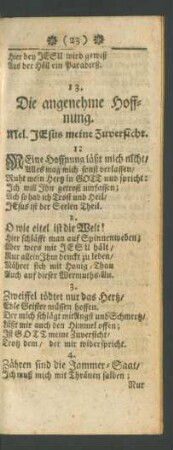 (23)
Hier bey JESU wird gewiß
Aus der Höll ein Paradieß.
13.
Die angenehme Hoff-
nung.
Mel. JEsus meine Zuversicht.
1.
MEine Hoffnung läßt mich nicht/
Alles mag mich sonst verlassen/
Ruht mein Hertz in GOTT und spricht:
Ich will Ihn getrost umfassen;
Ach so hab ich Trost und Heil/
JEsus ist der Seelen Theil.
2.
O wie eitel ist die Welt!
Hier schläfft man auf Spinneweben;
Der wers mit JESU hält/
Nur allein Ihm denckt zu leben/
Nähret sich mit Honig-Thau
Auch auf dieser Wermuths-Au.
3.
Zweiffel tödtet nur das Hertz/
Edle Geister müssen hoffen.
Der mich schlägt mit Angst und Schmertz/
Läßt mir auch den Himmel offen;
Ist GOTT meine Zuversicht/
Trotz dem/ der mir widerspricht.
4.
Zähren sind die Jammer-Saat/
Ich muß mich mit Thränen salben;
Nur